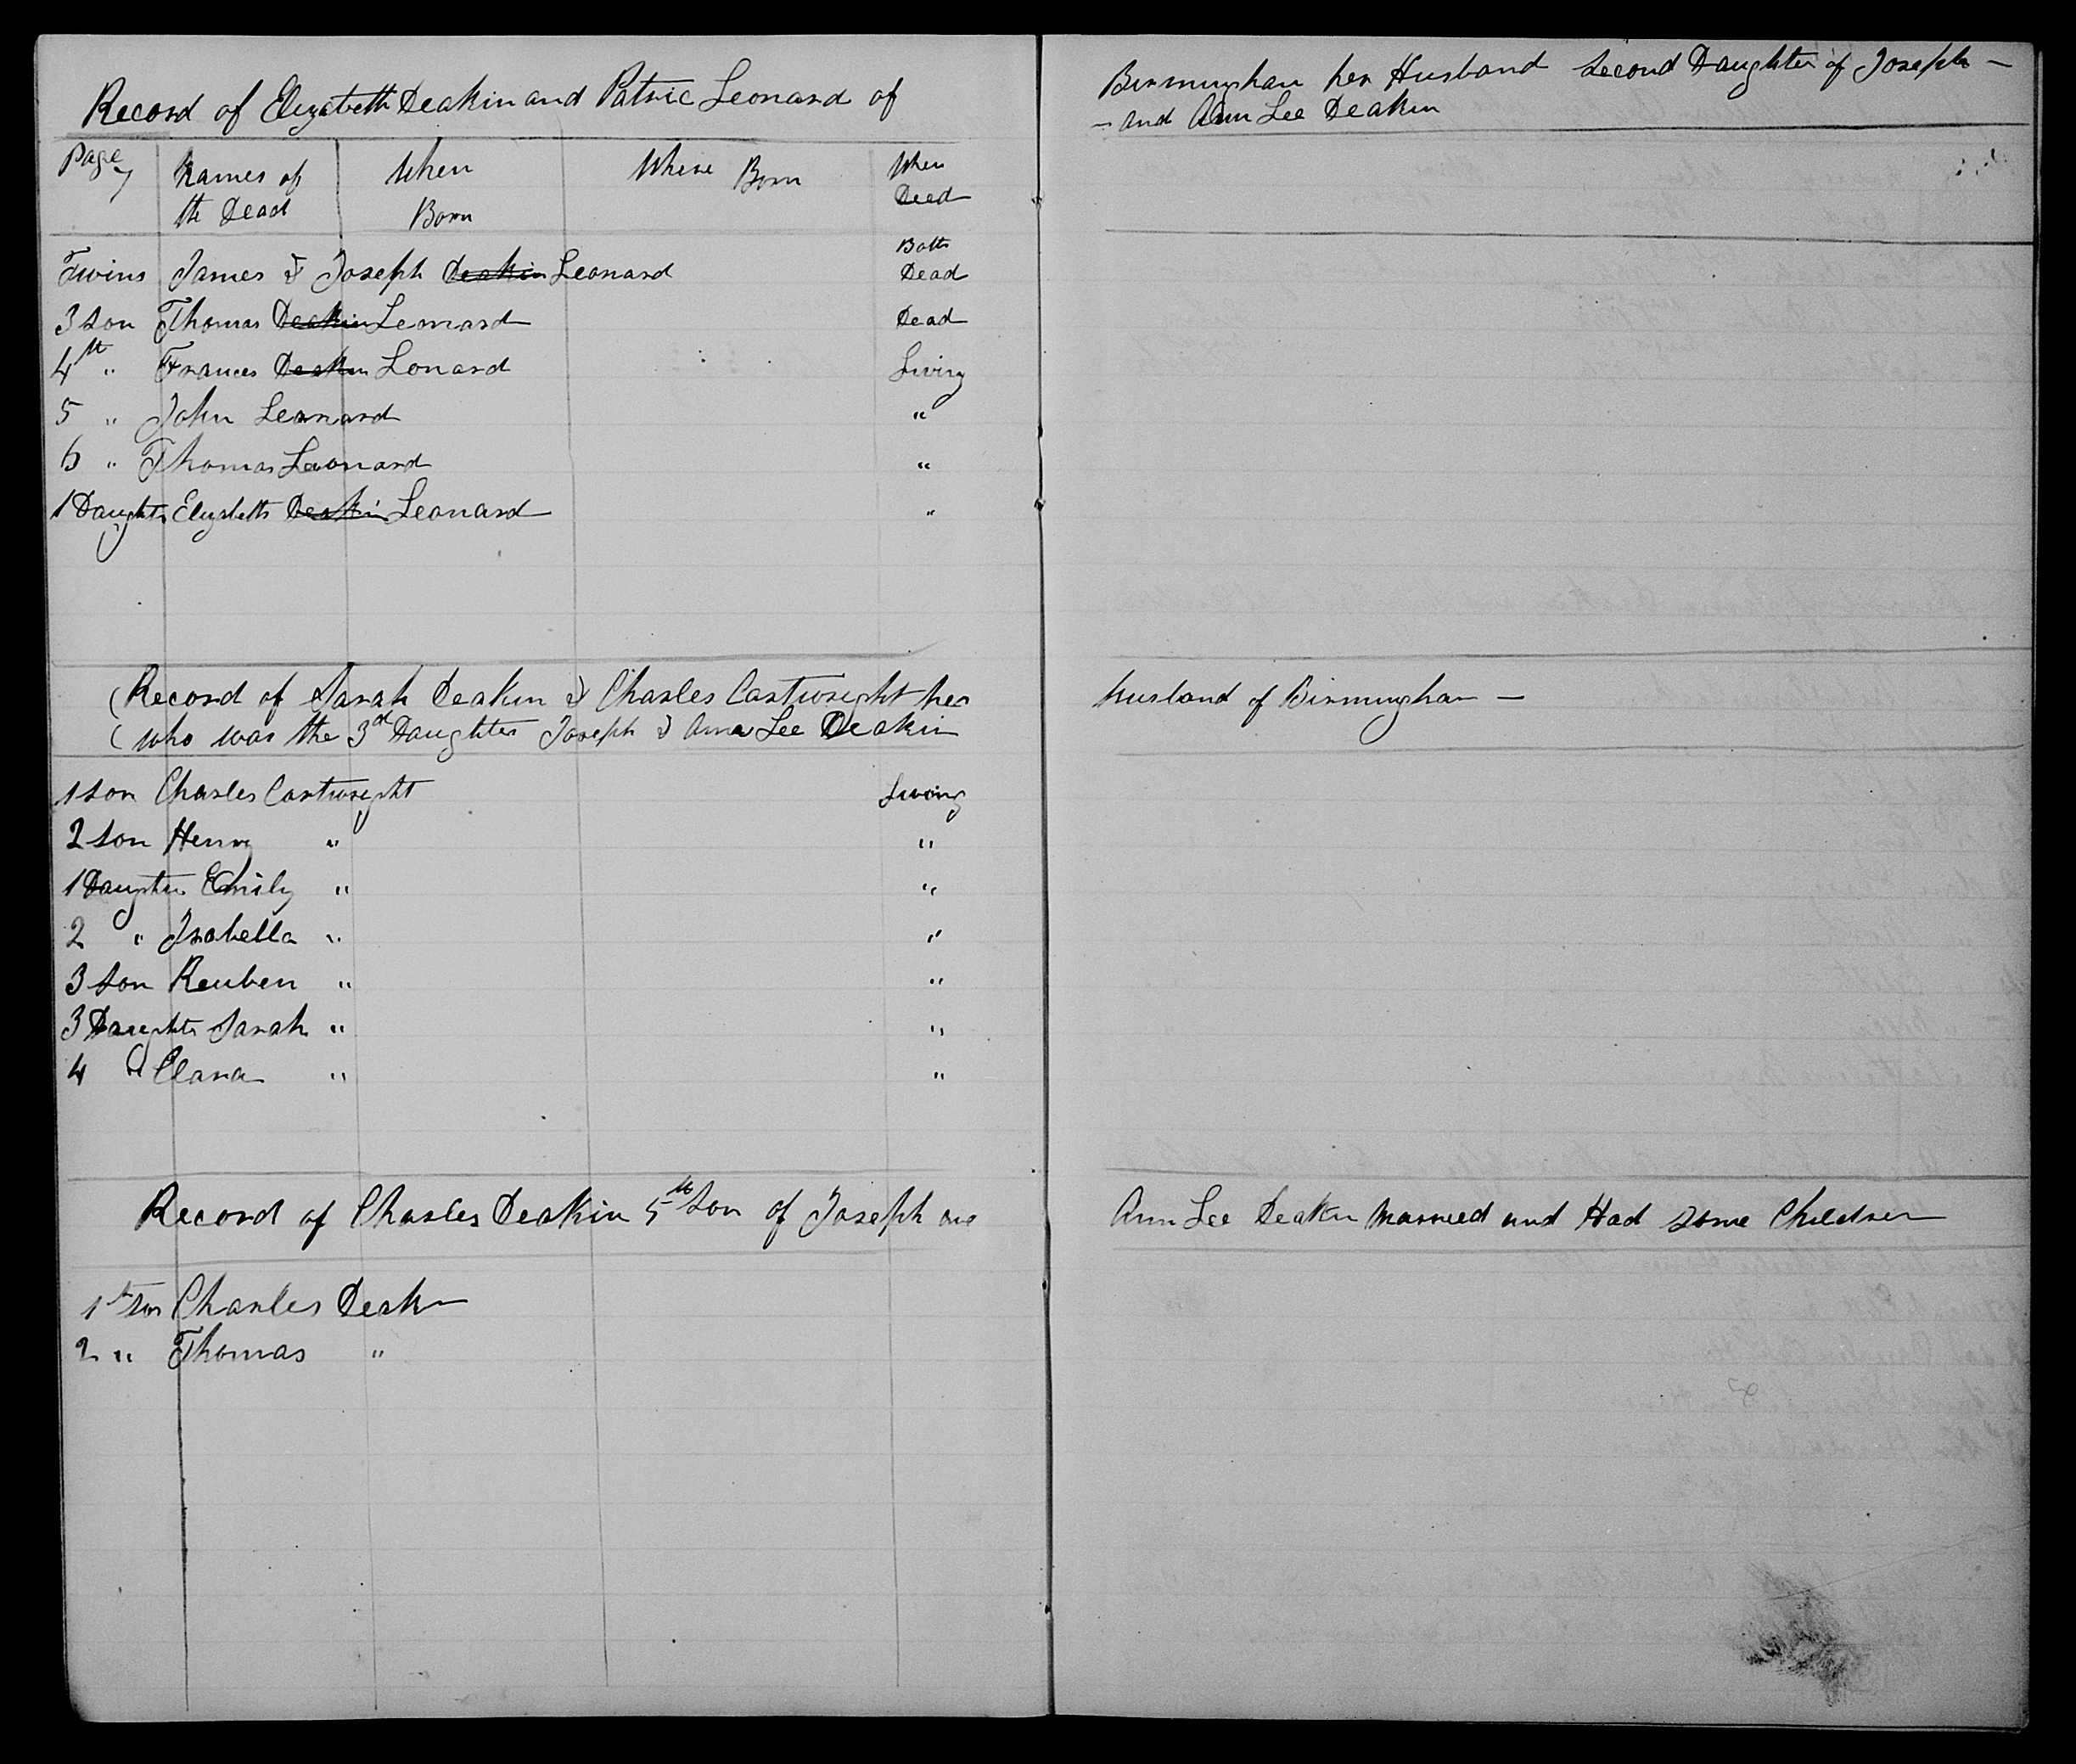 Record of Elizabeth Deakin and Patric Leonard of
Birmingham her Husband Second Daughter of Joseph —
— and Ann Lee Deakin
Page 7
Names of the Dead
When Born
Where Born
When Deed
Twins James & Joseph Deakin Leonard Both Dead
3 son Thomas Deakin Leonard Dead
4th " Frances Deakin Lonard Living
5 " John Leonard "
6 " Thomas Leonard "
1 Daughter Elizabeth Deakin Leonard "
(Record of Sarah Deakin & Charles Cartwright her husband of Birmingham —
(who was the 3d Daughter Joseph & Ann Lee Deakin
1 son Charles Cartwright Living
2 son Henry " "
1 Daughter Emily " "
2 " Isabella " "
3 son Reuben " "
3 Daughter Sarah " "
4 " Clara " "
Record of Charles Deakin 5th Son of Joseph and Ann Lee Deakin Married and Had some Children
1st son Charles Deakin
2 " Thomas "